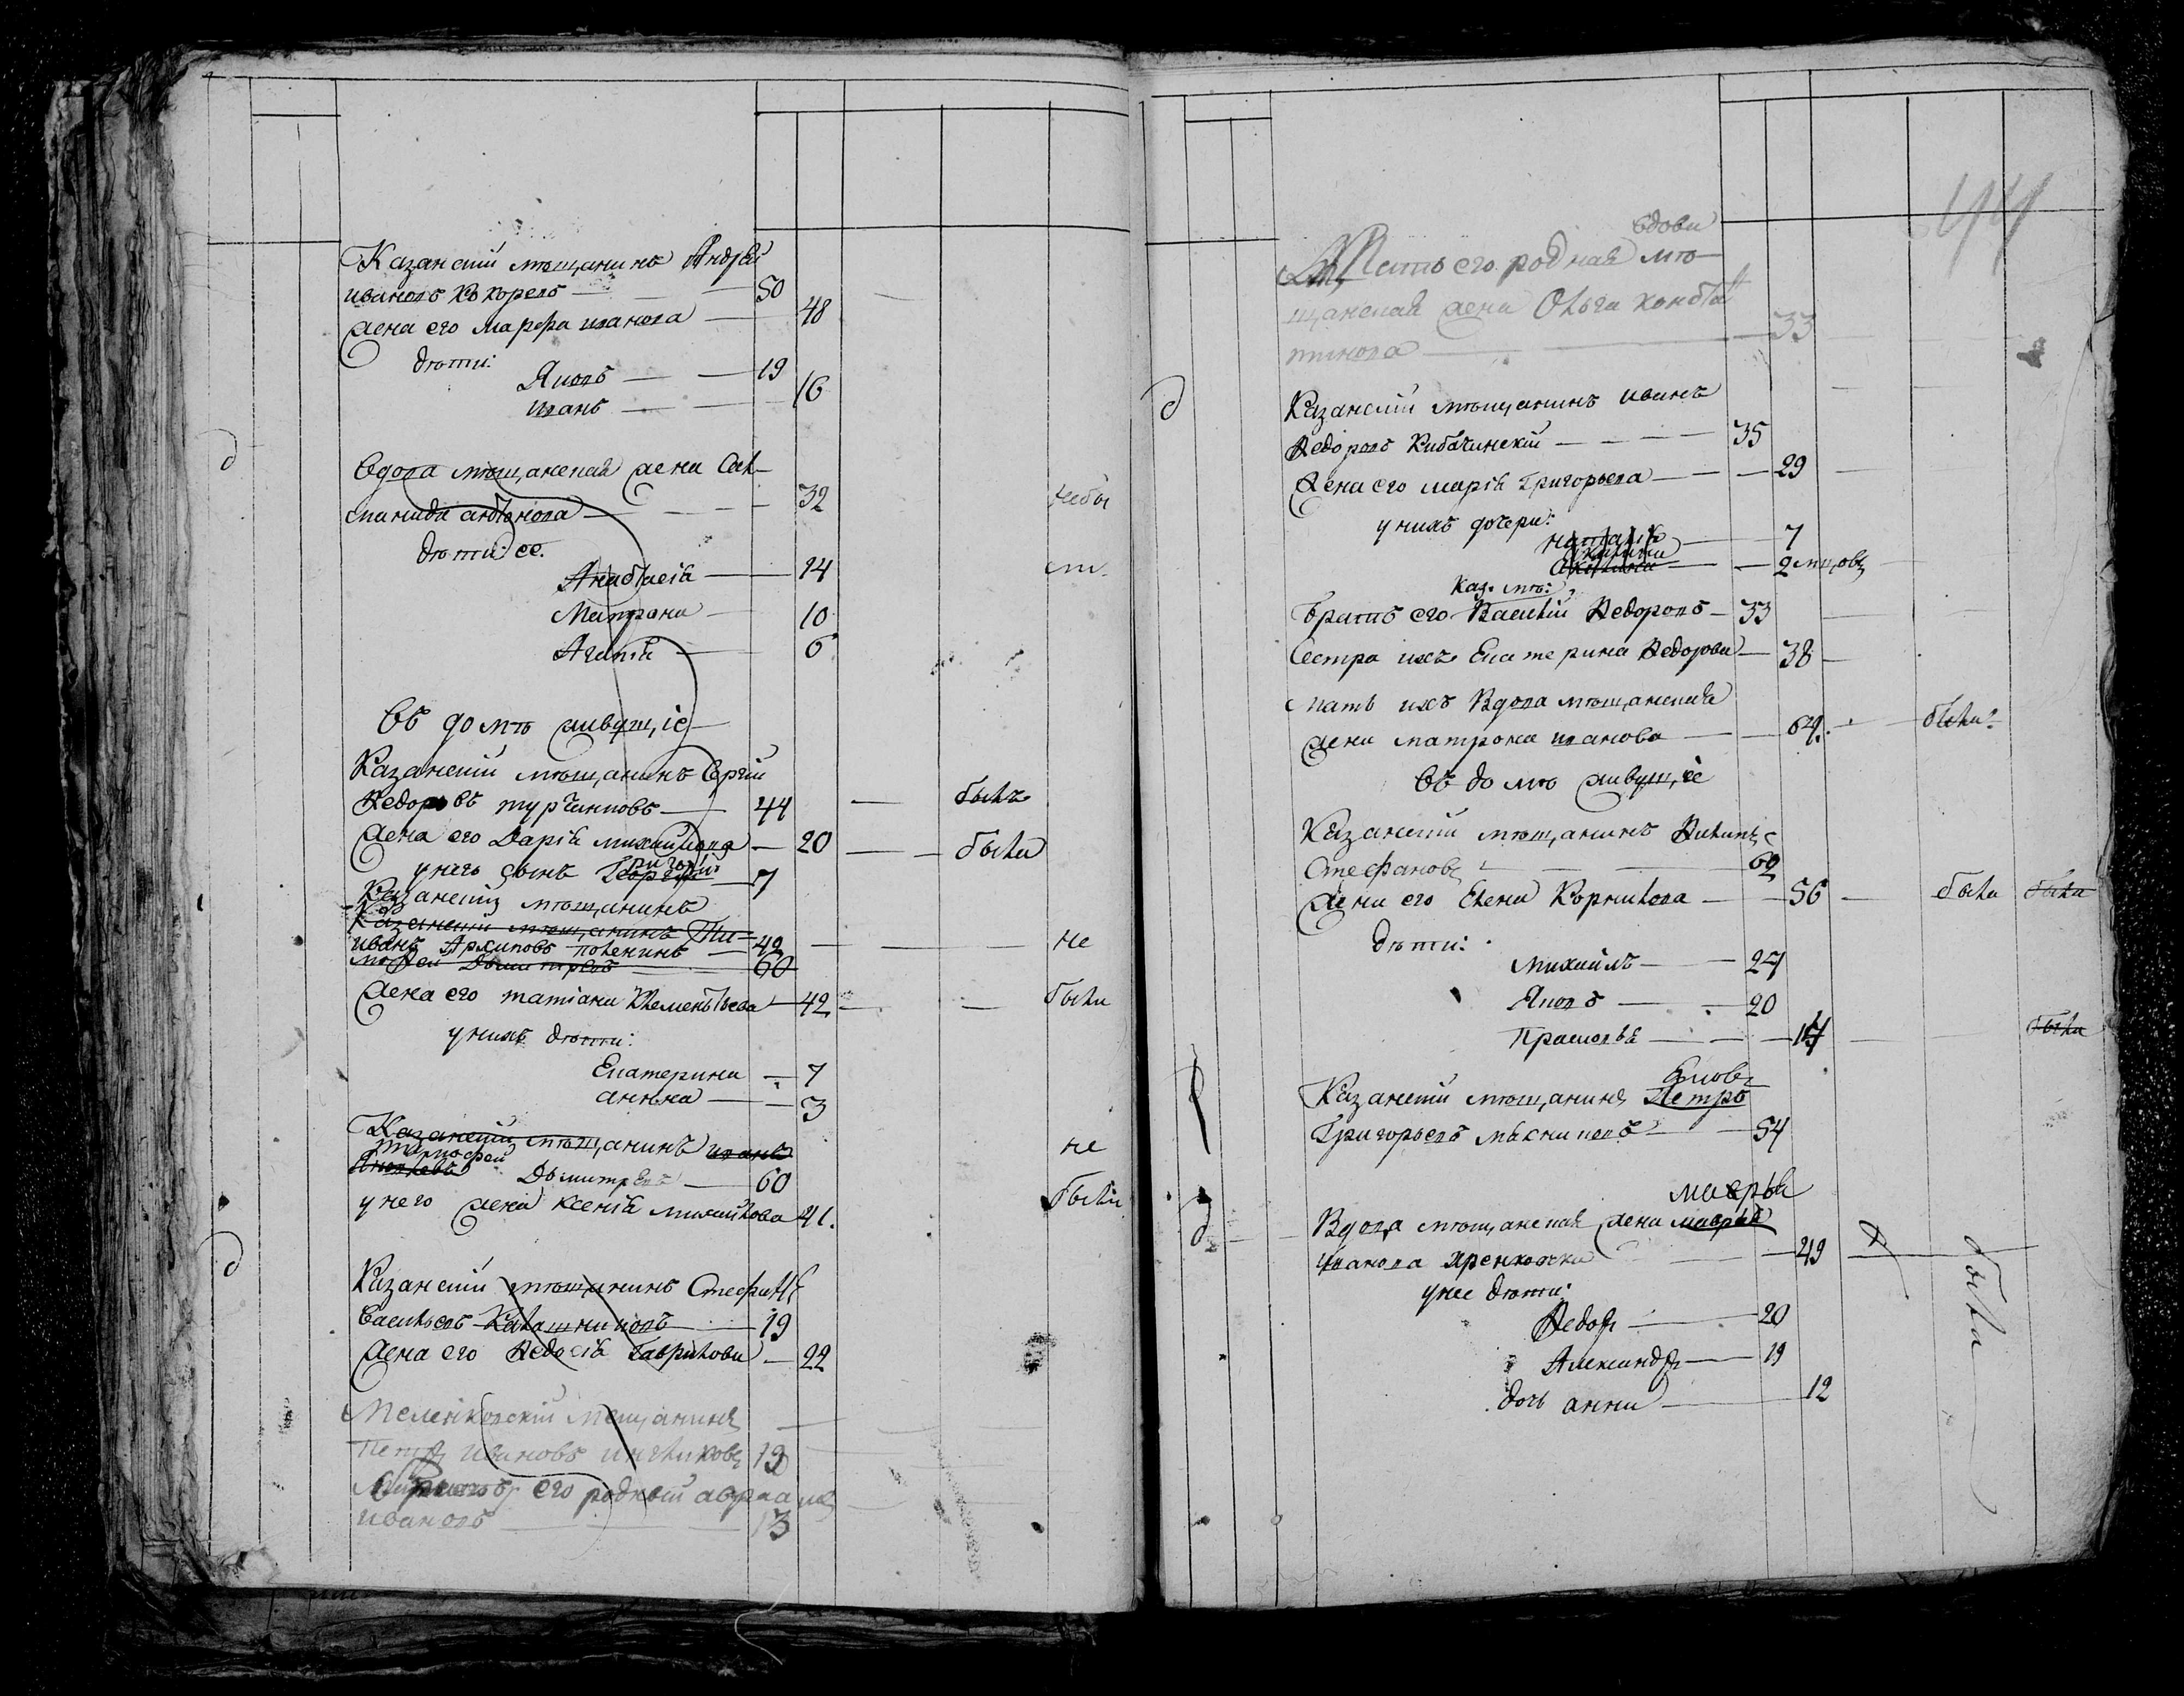 Казанскій мѣщанинъ Андрей
Ивановъ Кокоревъ 50
Жена его Марфа Иванова 48
дѣти:
Яковъ 19
Иванъ 16
д
Вдова мѣщанская жена Сах-
Антонова 32 небы
дѣти ее.
Анастасія 14
Матрона 10
Агапія 6
Въ домѣ живущіе
Казанскій мѣщанинъ Сергій
Ѳедоровъ Турчинновъ 44 былъ
Жена его Дарія Михайлова 20 была
у него сынъ Георгій 7
Казанскій мѣщанинъ
Казанскій мѣщанинъ Ти-
Иванъ Архиповъ Поленинъ 42 не
мофей Дьмитревъ 60
Жена его Татіана Клементьева 42 была
у нихъ дѣти:
Екатерина 7
Анна 3
Казанскій мѣщанинъ Иванъ не
Тимофей
Дьмитревъ 60
у него жена Ксенія Михайлова 41. была
д
Казанскій мѣщанинъ Стефанъ
Васильевъ Калашниковъ 19
Жена его Ѳедосія Гаврилова 22
Меленковскій мещанинъ
Петръ Ивановъ 19
его родный Авраамъ
Ивановъ 13
144
вдова
Мать его родная мѣ-
щанская жена Ольга Конста
нтинова 33
д
Казанскій мѣщанинъ Иванъ
Ѳедоровъ Кибачинскій 35
Жена его Марія Григорьева 29
у нихъ дочери:
Наталія 7
Акилина 2 мцовъ
Каз. мѣ:
Братъ его Василій Ѳедоровъ 33
Сестра ихъ Екатерина Ѳедорова 38
Мать ихъ Вдова мѣщанская
жена Матрона Иванова 64. была
Въ домѣ живущіе
Казанскій мѣщанинъ Филипъ
Стефановъ 62
Жена его Елена Корнилова 56 была была
дѣти:
Михайлъ 27
Яковъ 20
Прасковья 17 была
Казанскій мѣщанинъ Петръ
Яковъ
Григорьевъ Мясниковъ 54
Маерья
д
Вдова мѣщанская жена Маерья
Иванова 49 была
у нее дѣти:
Ѳедоръ 20
Александръ 19
дочь Анна 12